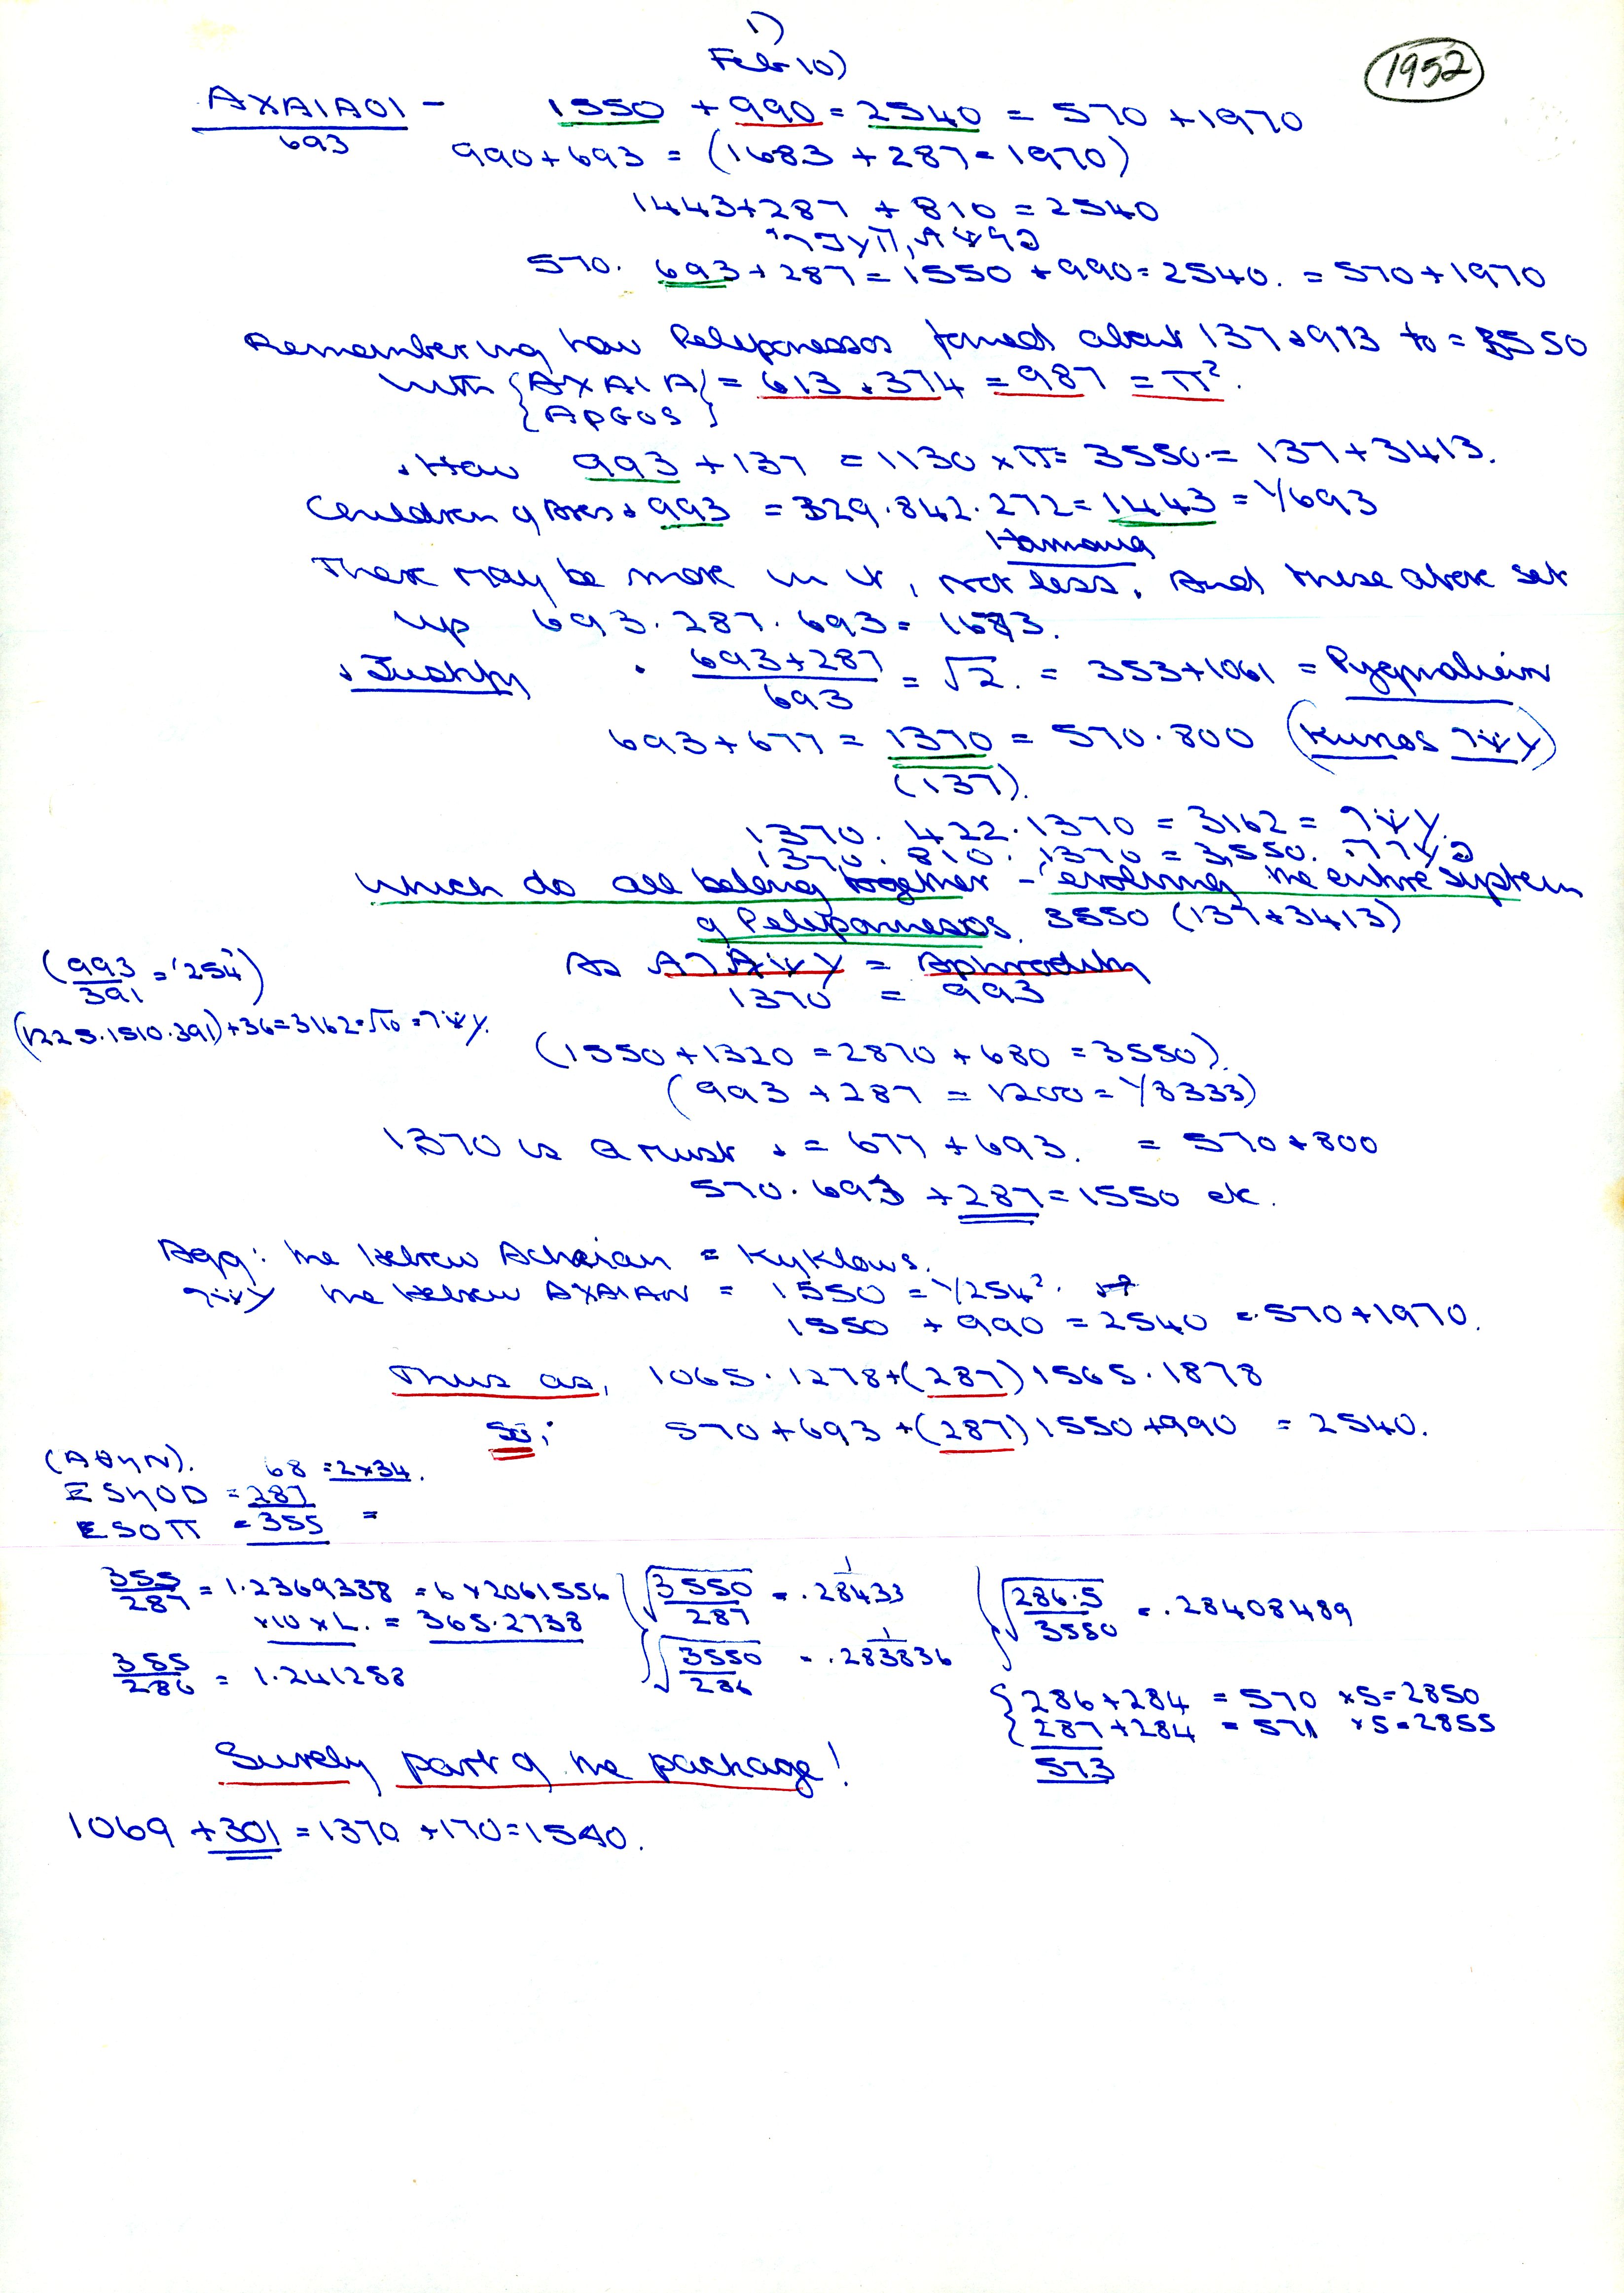 1)
Feb 10)
1952
AXAIAOI - 1550 + 990 = 2540 = 570 + 1970
693
990 + 693 = (1683 + 287 = 1970)
1443 + 287 + 810 = 2540
570. 693 + 287 = 1550 + 990 = 2540. = 570 + 1970
Remembering how Peleponessos formed about 137 + 993 to = 3550
with {AXAIA} = 613 + 374 = 987 = π².
{ARGOS}
+ How 993 + 137 = 1130 x π = 3550 = 137 + 3413.
Children of Ares + 993 = 329.842.272 = 1443 = 1/693
Harmonia
There may be more in it, not less. And these above set
up 693. 287. 693 = 1673.
. 693 + 287 / 693 = √2. = 353 + 1061 = Pygmalion
693 + 677 = 1370 = 570.800 (Kunos
(137).
1370. 422. 1370 = 3162 =
1370. 810. 1370 = 3,550.
which do all belong together - evolving the entire system
of Peleponnesos. 3550 (137 + 3413)
(993 / 391 = '254)
As = Aphrodity
1370 = 993
(1225.1510.391) + 36 = 3162 = √10 =
(1550 + 1320 = 2870 + 680 = 3550).
(993 + 287 = 1200 = 1/8333)
1370 is a must + = 677 + 693. = 570 + 800
570. 693 + 287 = 1550 etc.
Agg: the Hebrew Achaian = Kyklows.
the Hebrew AXAIAN = 1550 = 1/254².
1550 + 990 = 2540 = 570 + 1970.
Thus as, 1065. 1278 + (287) 1565. 1878
So; 570 + 693 + (287) 1550 + 990 = 2540.
(AθηN). 68 = 2x34.
ESηOD = 287
ESOπ = 355 =
355 / 287 = 1.2369338 = 6 x 2061556
x10 x L. = 365.2738
√3550 / 287 = 1 / .28433
√286.5 / 3550 = .28408489
355 / 286 = 1.241258
√3550 / 286 = 1 / .283836
{286 + 284 = 570 x 5 = 2850
{287 + 284 = 571 x 5 = 2855
573
Surely part of the package!
1069 + 301 = 1370 + 170 = 1540.